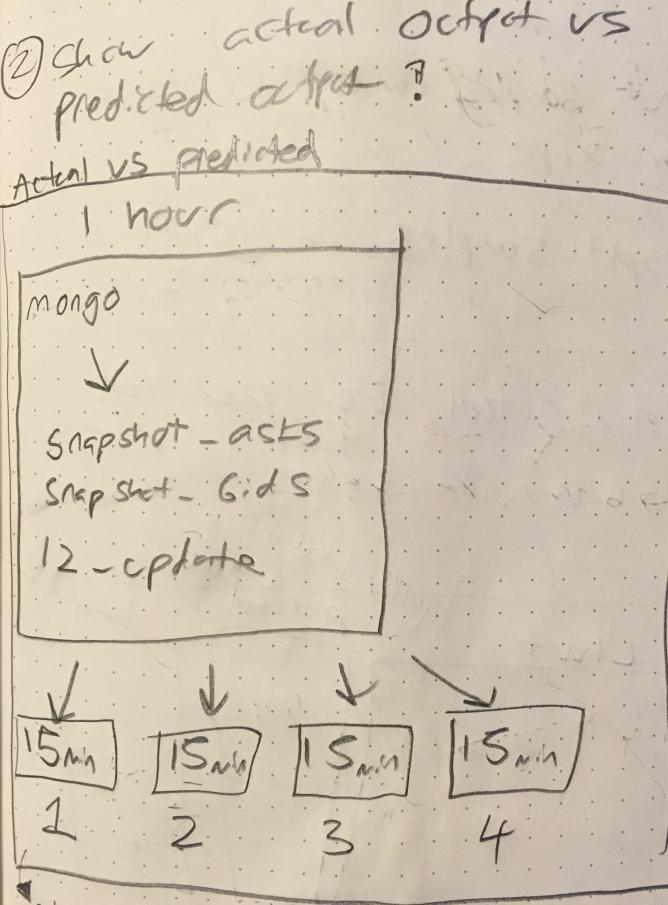 ② Show actual output vs
predicted output ?
Actual vs predicted
1 hour
mongo
snapshot_asks
snapshot_bids
l2_update
15min 15min 15min 15min
1 2 3 4